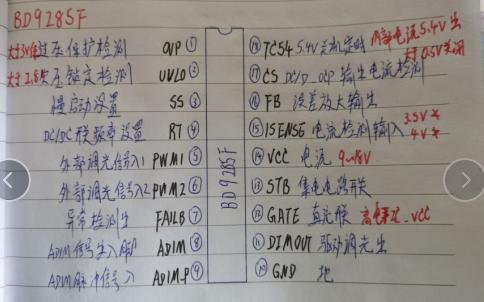 BD9285F
大于3V保过压保护检测 OVP ①
大于2.8欠压锁定检测 UVLO ②
慢启动设置 SS ③
DC/DC 频率设置 RT ④
外部调光信号入1 PWM1 ⑤
外部调光信号入2 PWM2 ⑥
异常检测出 FAILB ⑦
ADIM信号 ADIM ⑧
ADIM脉冲信号入 ADIM-P ⑨
BD9285F
⑱ TC54 5.4V关机定时 内部电流5.4V出
⑰ CS DC/D OCP 输出电流检测 大于0.5V关闭
⑯ FB 误差放大输出
⑮ ISENSE 电流检测输入 3.5V 4V
⑭ VCC 电流 9~18V
⑬ STB 集电电路开关
⑫ GATE VCC
⑪ DIMOUT 驱动调光出
⑩ GND 地